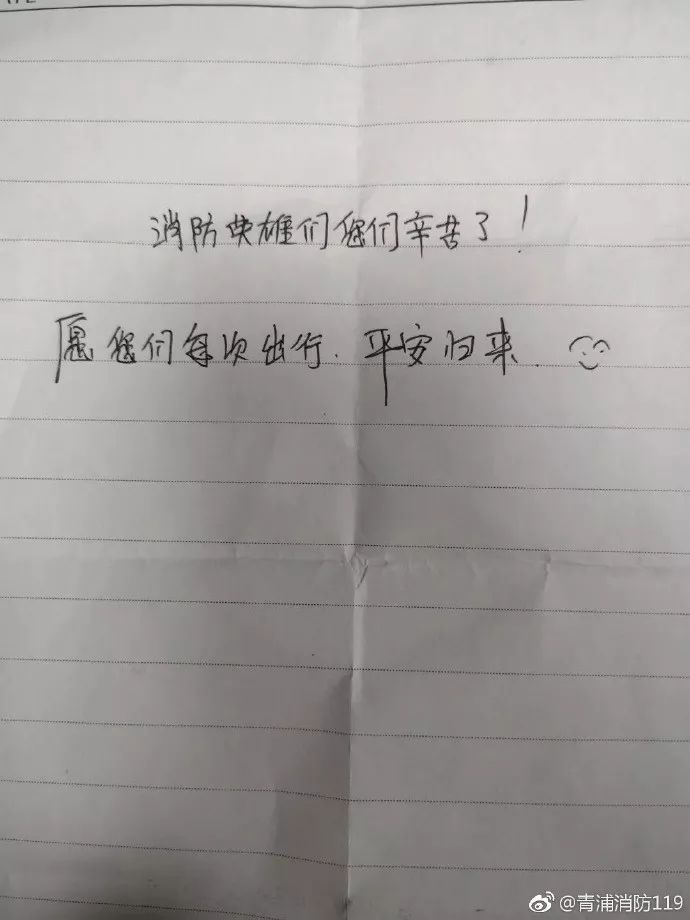 消防英雄们您们辛苦了！
愿您们每次出行.平安归来.
@青浦消防119